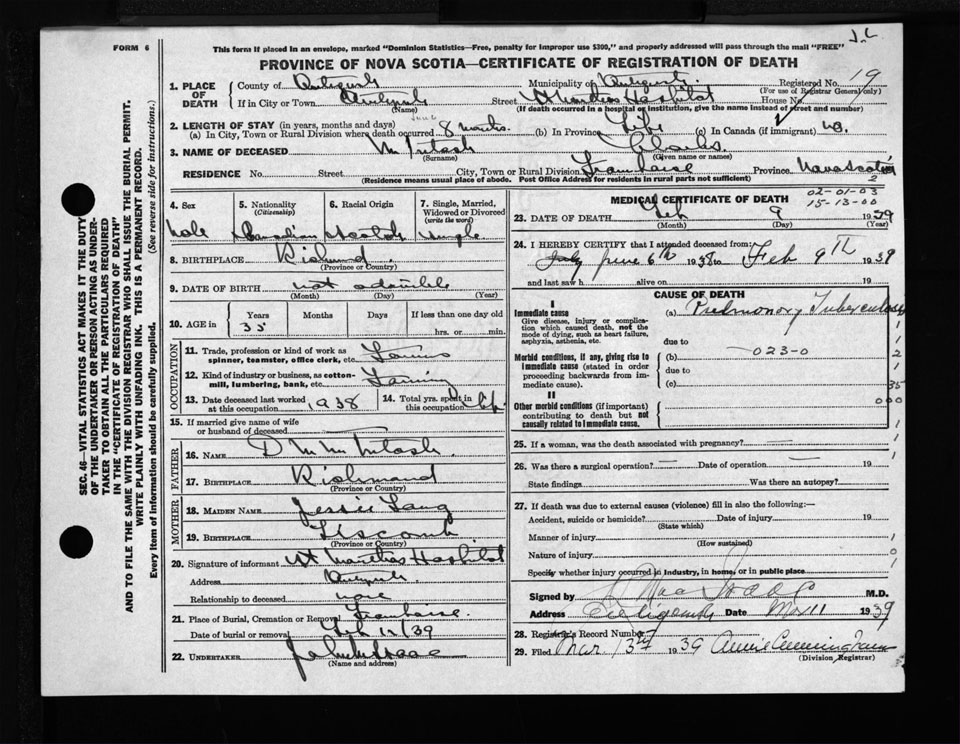 J.C
FORM 6
This form if placed in an envelope, marked "Dominion Statistics—Free, penalty for improper use $300," and properly addressed will pass through the mail "FREE"
PROVINCE OF NOVA SCOTIA—CERTIFICATE OF REGISTRATION OF DEATH
1. PLACE OF DEATH
County of Antigonish Municipality of Antigonish Registered No. 19
(For use of Registrar General only)
If in City or Town Antigonish Street St Martha's Hospital House No.
(Name) (If death occurred in a hospital or institution, give the name instead of street and number)
2. LENGTH OF STAY (in years, months and days)
(a) In City, Town or Rural Division where death occurred 8 months. (b) In Province Life (c) In Canada (if immigrant)
3. NAME OF DECEASED McIntosh Charles
(Surname) (Given name or names)
RESIDENCE No. Street City, Town or Rural Division Framboise Province Nova Scotia
(Residence means usual place of abode. Post Office Address for residents in rural parts not sufficient)
2
4. Sex Male
5. Nationality (Citizenship) Canadian
6. Racial Origin Scotch
7. Single, Married, Widowed or Divorced (write the word) Single
8. BIRTHPLACE Richmond
(Province or Country)
9. DATE OF BIRTH not
(Month) (Day) (Year)
10. AGE in Years 35 Months Days If less than one day old
hrs. or min.
OCCUPATION
11. Trade, profession or kind of work as spinner, teamster, office clerk, etc.
12. Kind of industry or business, as cotton-mill, lumbering, bank, etc. Farming
13. Date deceased last worked at this occupation 1938
14. Total yrs. spent in this occupation
15. If married give name of wife or husband of deceased
FATHER
16. NAME D M McIntosh
17. BIRTHPLACE Richmond
(Province or Country)
MOTHER
18. MAIDEN NAME Jessie
19. BIRTHPLACE
(Province or Country)
20. Signature of informant St Martha's Hospital
Address Antigonish
Relationship to deceased none
21. Place of Burial, Cremation or Removal Framboise.
Date of burial or removal Feb 12/39
22. UNDERTAKER
(Name and address)
MEDICAL CERTIFICATE OF DEATH
02-01-03
15-13-00
23. DATE OF DEATH Feb 9 1939
(Month) (Day) (Year)
24. I HEREBY CERTIFY that I attended deceased from:
July June 6th 1938 to Feb 9TH 1939
and last saw h alive on 19
CAUSE OF DEATH
I
Immediate cause
Give disease, injury or complication which caused death, not the mode of dying, such as heart failure, asphyxia, asthenia, etc.
(a) Pulmonary Tuberculosis
due to
Morbid conditions, if any, giving rise to immediate cause (stated in order proceeding backwards from immediate cause).
(b) 023-0
due to
(c)
II
Other morbid conditions (if important) contributing to death but not causally related to immediate cause.
1
1
2
1
35
000
1
25. If a woman, was the death associated with pregnancy?
26. Was there a surgical operation? Date of operation 19
State findings Was there an autopsy?
27. If death was due to external causes (violence) fill in also the following:
Accident, suicide or homicide? Date of injury 19
(State which)
Manner of injury
(How sustained)
Nature of injury
Specify whether injury occurred in industry, in home, or in public place
Signed by M.D.
Address Antigonish Date Mar 11 1939
28. Registrar's Record Number
29. Filed Mar. 13th 1939 Annie Cunningham
(Division Registrar)
SEC. 46—VITAL STATISTICS ACT MAKES IT THE DUTY OF THE UNDERTAKER OR PERSON ACTING AS UNDERTAKER TO OBTAIN ALL THE PARTICULARS REQUIRED IN THE "CERTIFICATE OF REGISTRATION OF DEATH" AND TO FILE THE SAME WITH THE DIVISION REGISTRAR WHO SHALL ISSUE THE BURIAL PERMIT.
WRITE PLAINLY WITH UNFADING INK. THIS IS A PERMANENT RECORD.
Every item of information should be carefully supplied. (See reverse side for instructions.)